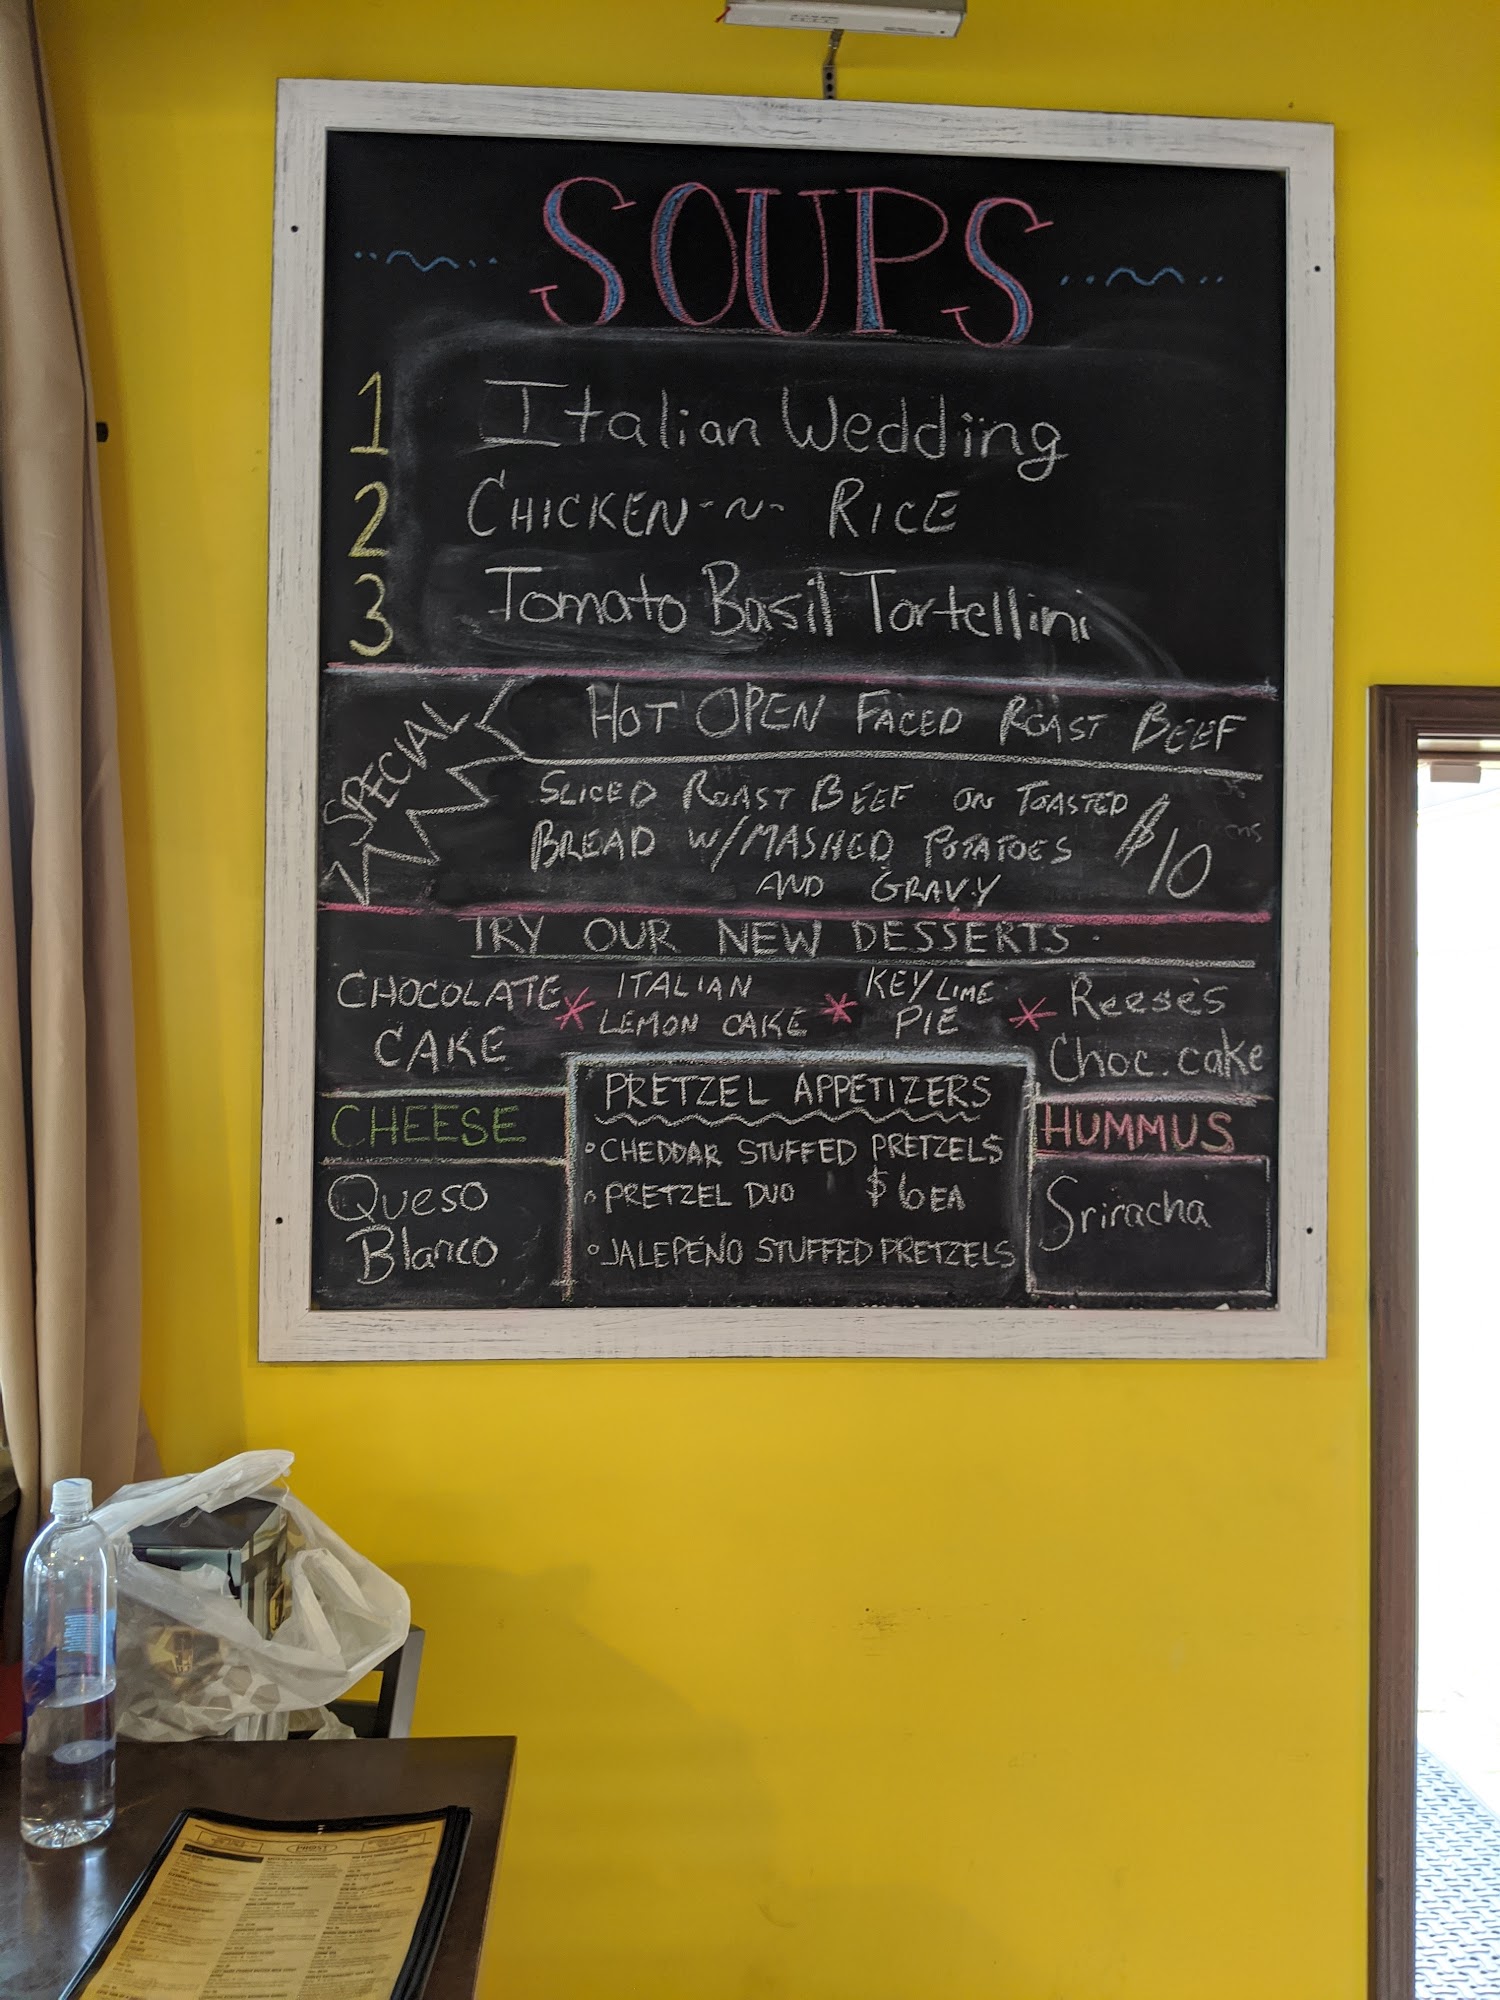 SOUPS
1 Italian Wedding
2 CHICKEN-N- RICE
3 Tomato Basil Tortellini
SPECIAL
HOT OPEN FACED ROAST BEEF
SLICED ROAST BEEF ON TOASTED
BREAD W/MASHED POTATOES
AND GRAVY
$10
TRY OUR NEW DESSERTS
CHOCOLATE
CAKE
*
ITALIAN
LEMON CAKE
*
KEY LIME
PIE
*
Reese's
Choc. cake
CHEESE
Queso
Blanco
PRETZEL APPETIZERS
• CHEDDAR STUFFED PRETZELS
• PRETZEL DUO $6 EA
• JALEPEÑO STUFFED PRETZELS
HUMMUS
Sriracha
PROST